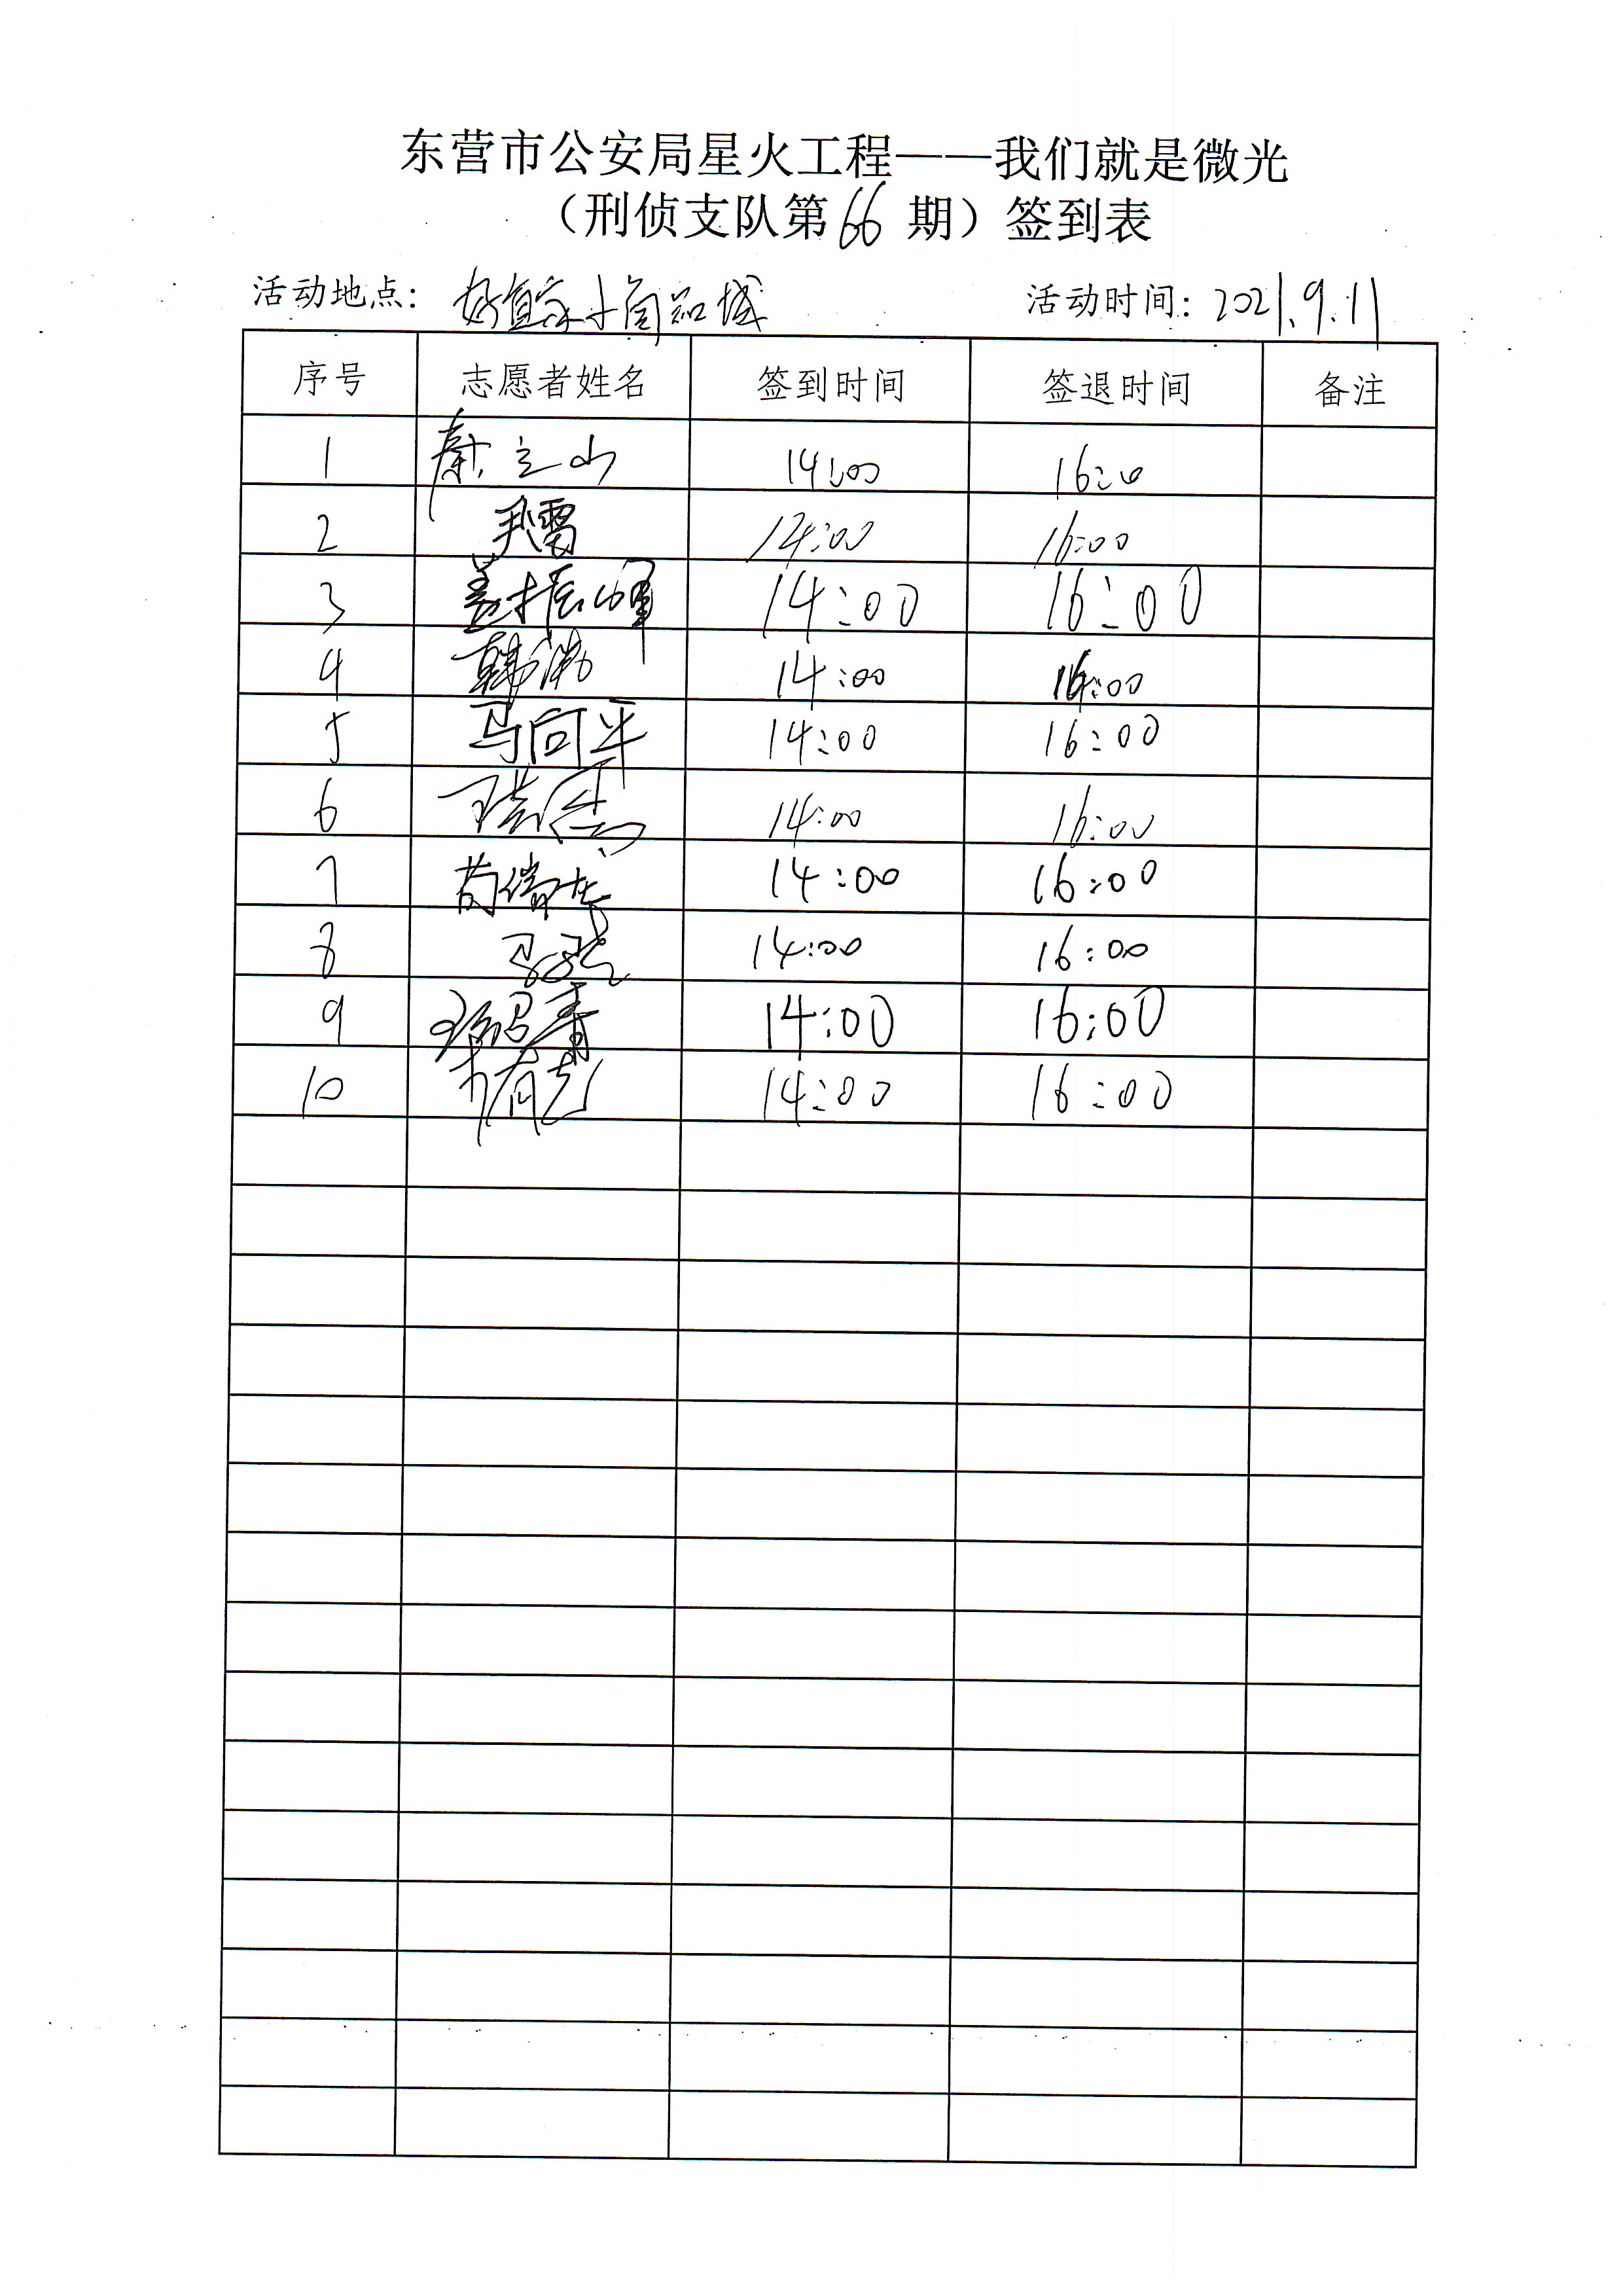 东营市公安局星火工程——我们就是微光
（刑侦支队第66期）签到表
活动地点：好宜家小商品城 活动时间：2021.9.11
序号 志愿者姓名 签到时间 签退时间 备注
1 立山 14:00 16:00
2 尹雷 14:00 16:00
3 盖振峰 14:00 16:00
4 韩渤 14:00 16:00
5 马向平 14:00 16:00
6 14:00 16:00
7 苟瑞龙 14:00 16:00
8 14:00 16:00
9 14:00 16:00
10 14:00 16:00